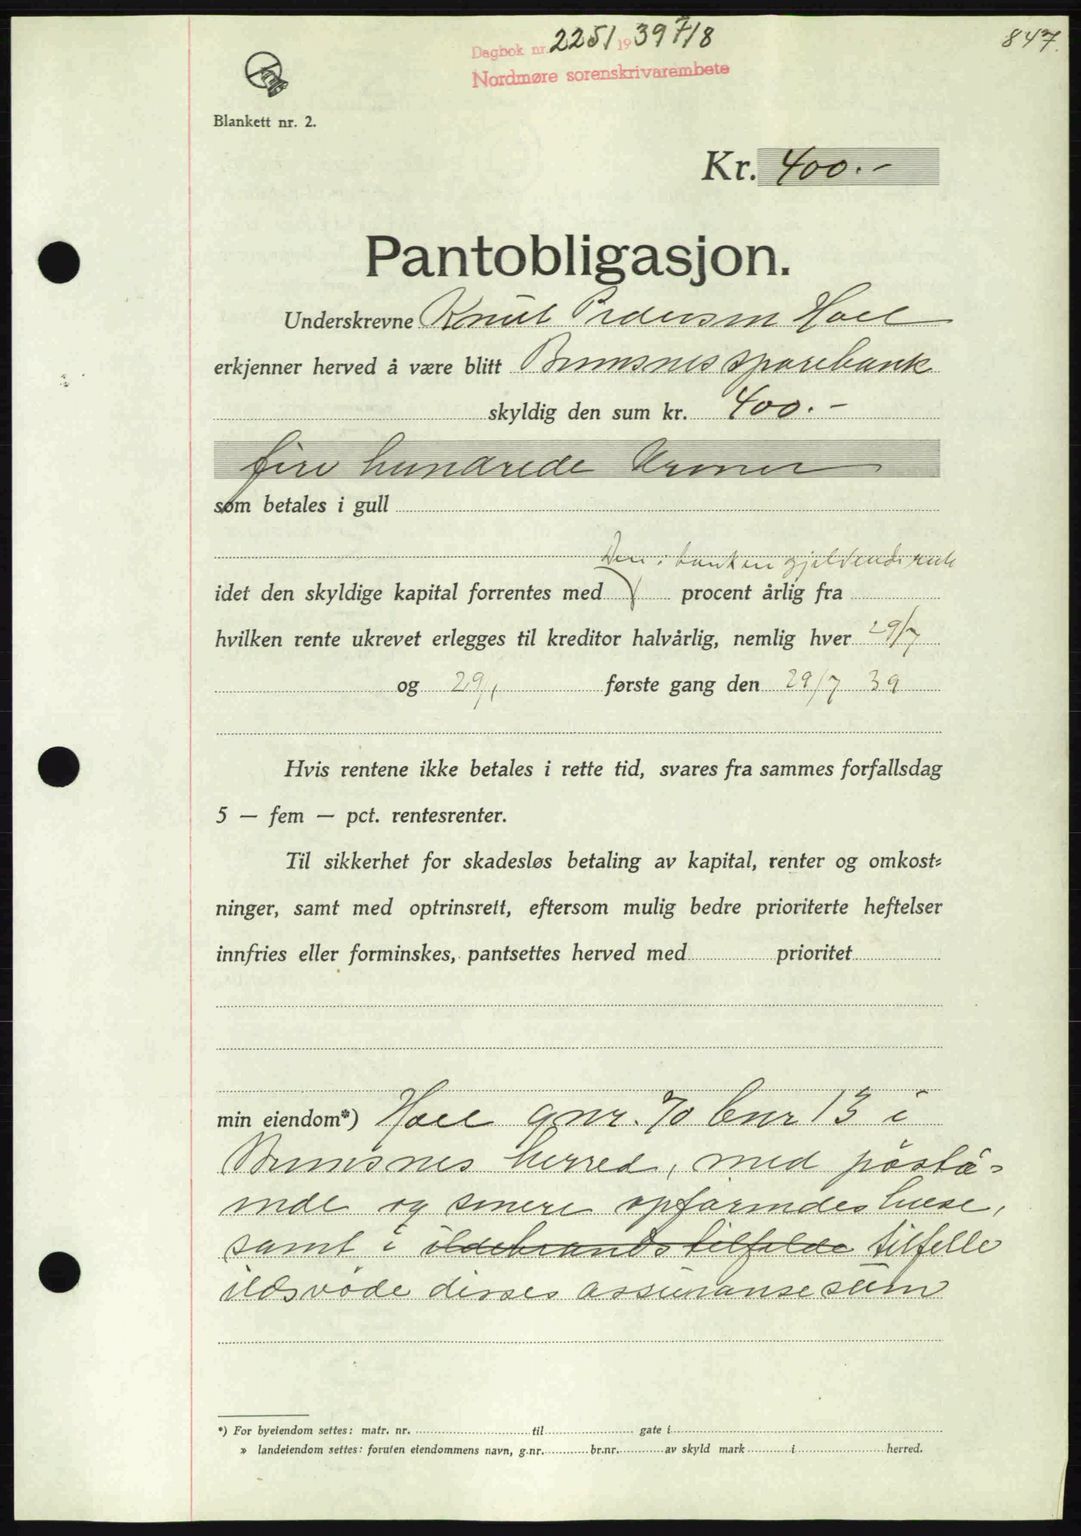 847.
Dagbok nr. 2251 1939 7/8
Nordmøre sorenskrivarembete
Blankett nr. 2.
Kr. 400.-
Pantobligasjon.
Underskrevne Knut Pedersen Hoel
erkjenner herved å være blitt Bremsnes sparebank
skyldig den sum kr. 400.-
fire hundrede kroner
som betales i gull
Den i banken gjeldende rente
idet den skyldige kapital forrentes med procent årlig fra
hvilken rente ukrevet erlegges til kreditor halvårlig, nemlig hver 29/7
og 29/1 første gang den 29/7 39
Hvis rentene ikke betales i rette tid, svares fra sammes forfallsdag
5 — fem — pct. rentesrenter.
Til sikkerhet for skadesløs betaling av kapital, renter og omkost-
ninger, samt med optrinsrett, eftersom mulig bedre prioriterte heftelser
innfries eller forminskes, pantsettes herved med prioritet
min eiendom*) Hoel gnr. 70 bnr 13 i
Bremsnes herred, med påstå-
ende og senere opførendes huse,
samt i ildebrands tilfelde tilfelle
ildsvåde disses assuransesum
*) For byeiendom settes: matr. nr. til gate i
» landeiendom settes: foruten eiendommens navn, g.nr. br.nr. av skyld mark i herred.